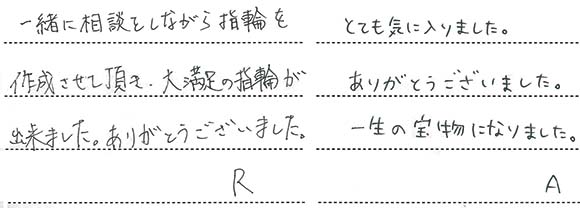 一緒に相談をしながら指輪を
作成させて頂き、大満足の指輪が
出来ました。ありがとうございました。
R
とても気に入りました。
ありがとうございました。
一生の宝物になりました。
A